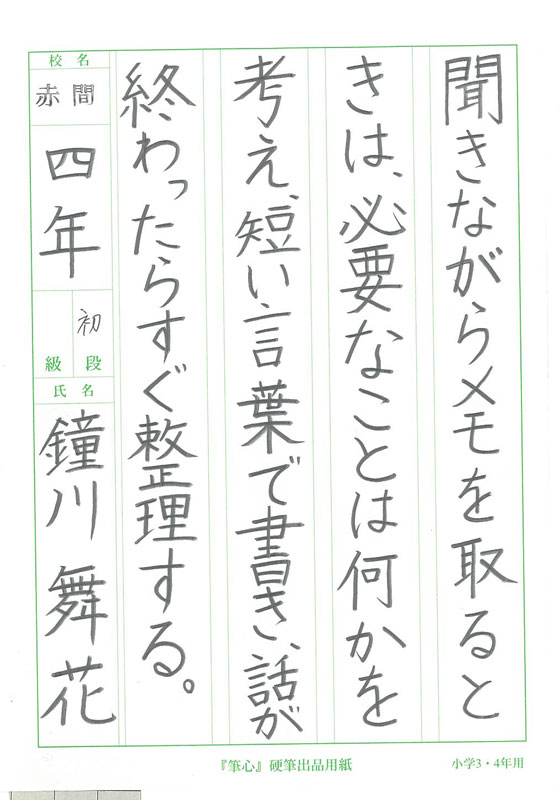 聞きながらメモを取ると
きは、必要なことは何かを
考え、短い言葉で書き、話が
終わったらすぐ整理する。
校名
赤間
四年
初
級 段
氏名
鐘川 舞花
『筆心』硬筆出品用紙
小学3・4年用